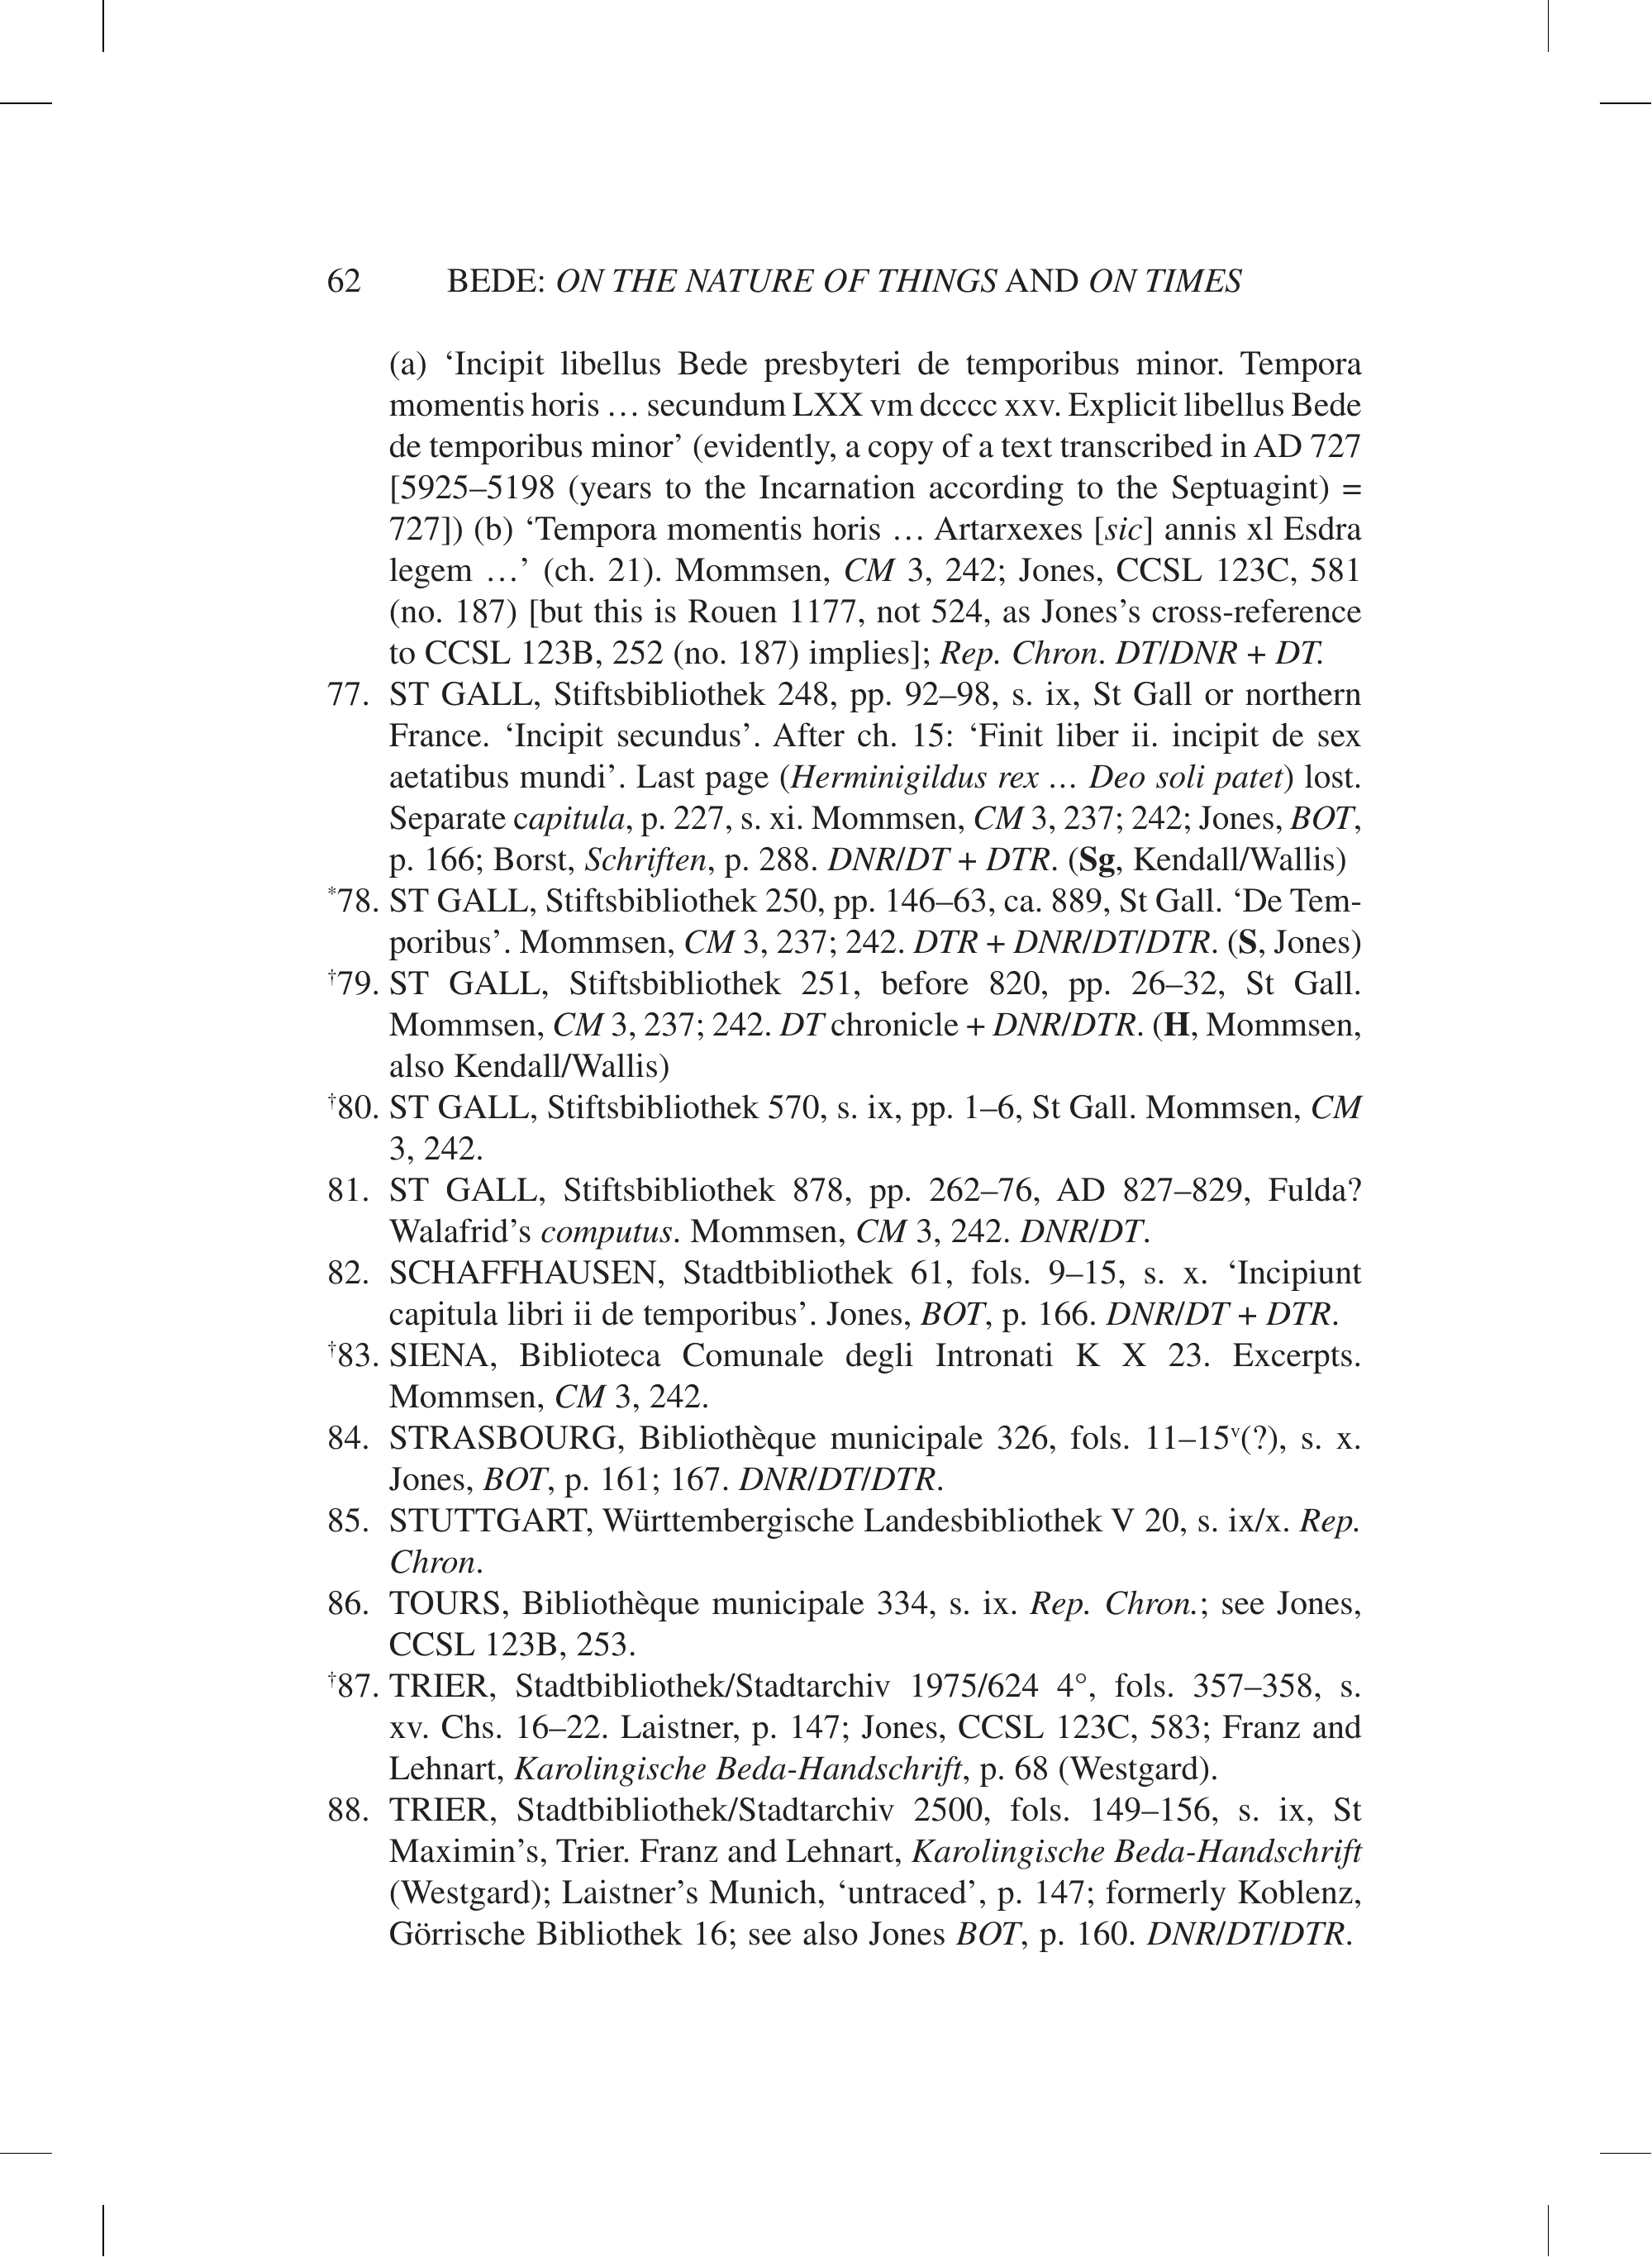 62 BEDE: ON THE NATURE OF THINGS AND ON TIMES
(a) ‘Incipit libellus Bede presbyteri de temporibus minor. Tempora
momentis horis … secundum LXX vm dcccc xxv. Explicit libellus Bede
de temporibus minor’ (evidently, a copy of a text transcribed in AD 727
[5925–5198 (years to the Incarnation according to the Septuagint) =
727]) (b) ‘Tempora momentis horis … Artarxexes [sic] annis xl Esdra
legem …’ (ch. 21). Mommsen, CM 3, 242; Jones, CCSL 123C, 581
(no. 187) [but this is Rouen 1177, not 524, as Jones’s cross-reference
to CCSL 123B, 252 (no. 187) implies]; Rep. Chron. DT/DNR + DT.
77. ST GALL, Stiftsbibliothek 248, pp. 92–98, s. ix, St Gall or northern
France. ‘Incipit secundus’. After ch. 15: ‘Finit liber ii. incipit de sex
aetatibus mundi’. Last page (Herminigildus rex … Deo soli patet) lost.
Separate capitula, p. 227, s. xi. Mommsen, CM 3, 237; 242; Jones, BOT,
p. 166; Borst, Schriften, p. 288. DNR/DT + DTR. (Sg, Kendall/Wallis)
*78. ST GALL, Stiftsbibliothek 250, pp. 146–63, ca. 889, St Gall. ‘De Tem-
poribus’. Mommsen, CM 3, 237; 242. DTR + DNR/DT/DTR. (S, Jones)
†79. ST GALL, Stiftsbibliothek 251, before 820, pp. 26–32, St Gall.
Mommsen, CM 3, 237; 242. DT chronicle + DNR/DTR. (H, Mommsen,
also Kendall/Wallis)
†80. ST GALL, Stiftsbibliothek 570, s. ix, pp. 1–6, St Gall. Mommsen, CM
3, 242.
81. ST GALL, Stiftsbibliothek 878, pp. 262–76, AD 827–829, Fulda?
Walafrid’s computus. Mommsen, CM 3, 242. DNR/DT.
82. SCHAFFHAUSEN, Stadtbibliothek 61, fols. 9–15, s. x. ‘Incipiunt
capitula libri ii de temporibus’. Jones, BOT, p. 166. DNR/DT + DTR.
†83. SIENA, Biblioteca Comunale degli Intronati K X 23. Excerpts.
Mommsen, CM 3, 242.
84. STRASBOURG, Bibliothèque municipale 326, fols. 11–15ᵛ(?), s. x.
Jones, BOT, p. 161; 167. DNR/DT/DTR.
85. STUTTGART, Württembergische Landesbibliothek V 20, s. ix/x. Rep.
Chron.
86. TOURS, Bibliothèque municipale 334, s. ix. Rep. Chron.; see Jones,
CCSL 123B, 253.
†87. TRIER, Stadtbibliothek/Stadtarchiv 1975/624 4°, fols. 357–358, s.
xv. Chs. 16–22. Laistner, p. 147; Jones, CCSL 123C, 583; Franz and
Lehnart, Karolingische Beda-Handschrift, p. 68 (Westgard).
88. TRIER, Stadtbibliothek/Stadtarchiv 2500, fols. 149–156, s. ix, St
Maximin’s, Trier. Franz and Lehnart, Karolingische Beda-Handschrift
(Westgard); Laistner’s Munich, ‘untraced’, p. 147; formerly Koblenz,
Görrische Bibliothek 16; see also Jones BOT, p. 160. DNR/DT/DTR.